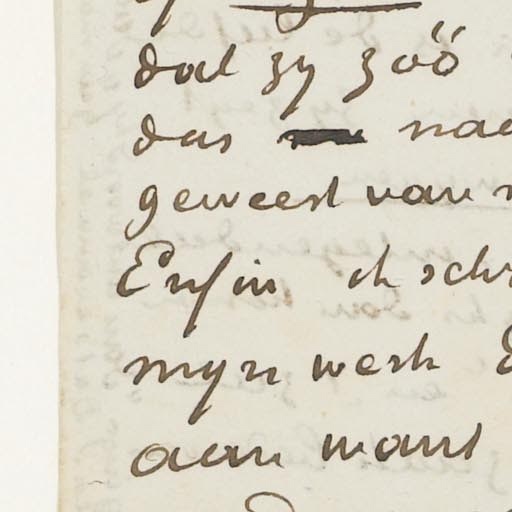 dat zy zóó
das naa
geweest van
Enfin ik schr
myn werk
aan want